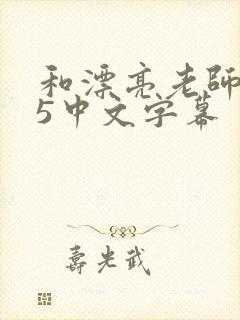 和漂亮老師
5中文字幕
壽光武